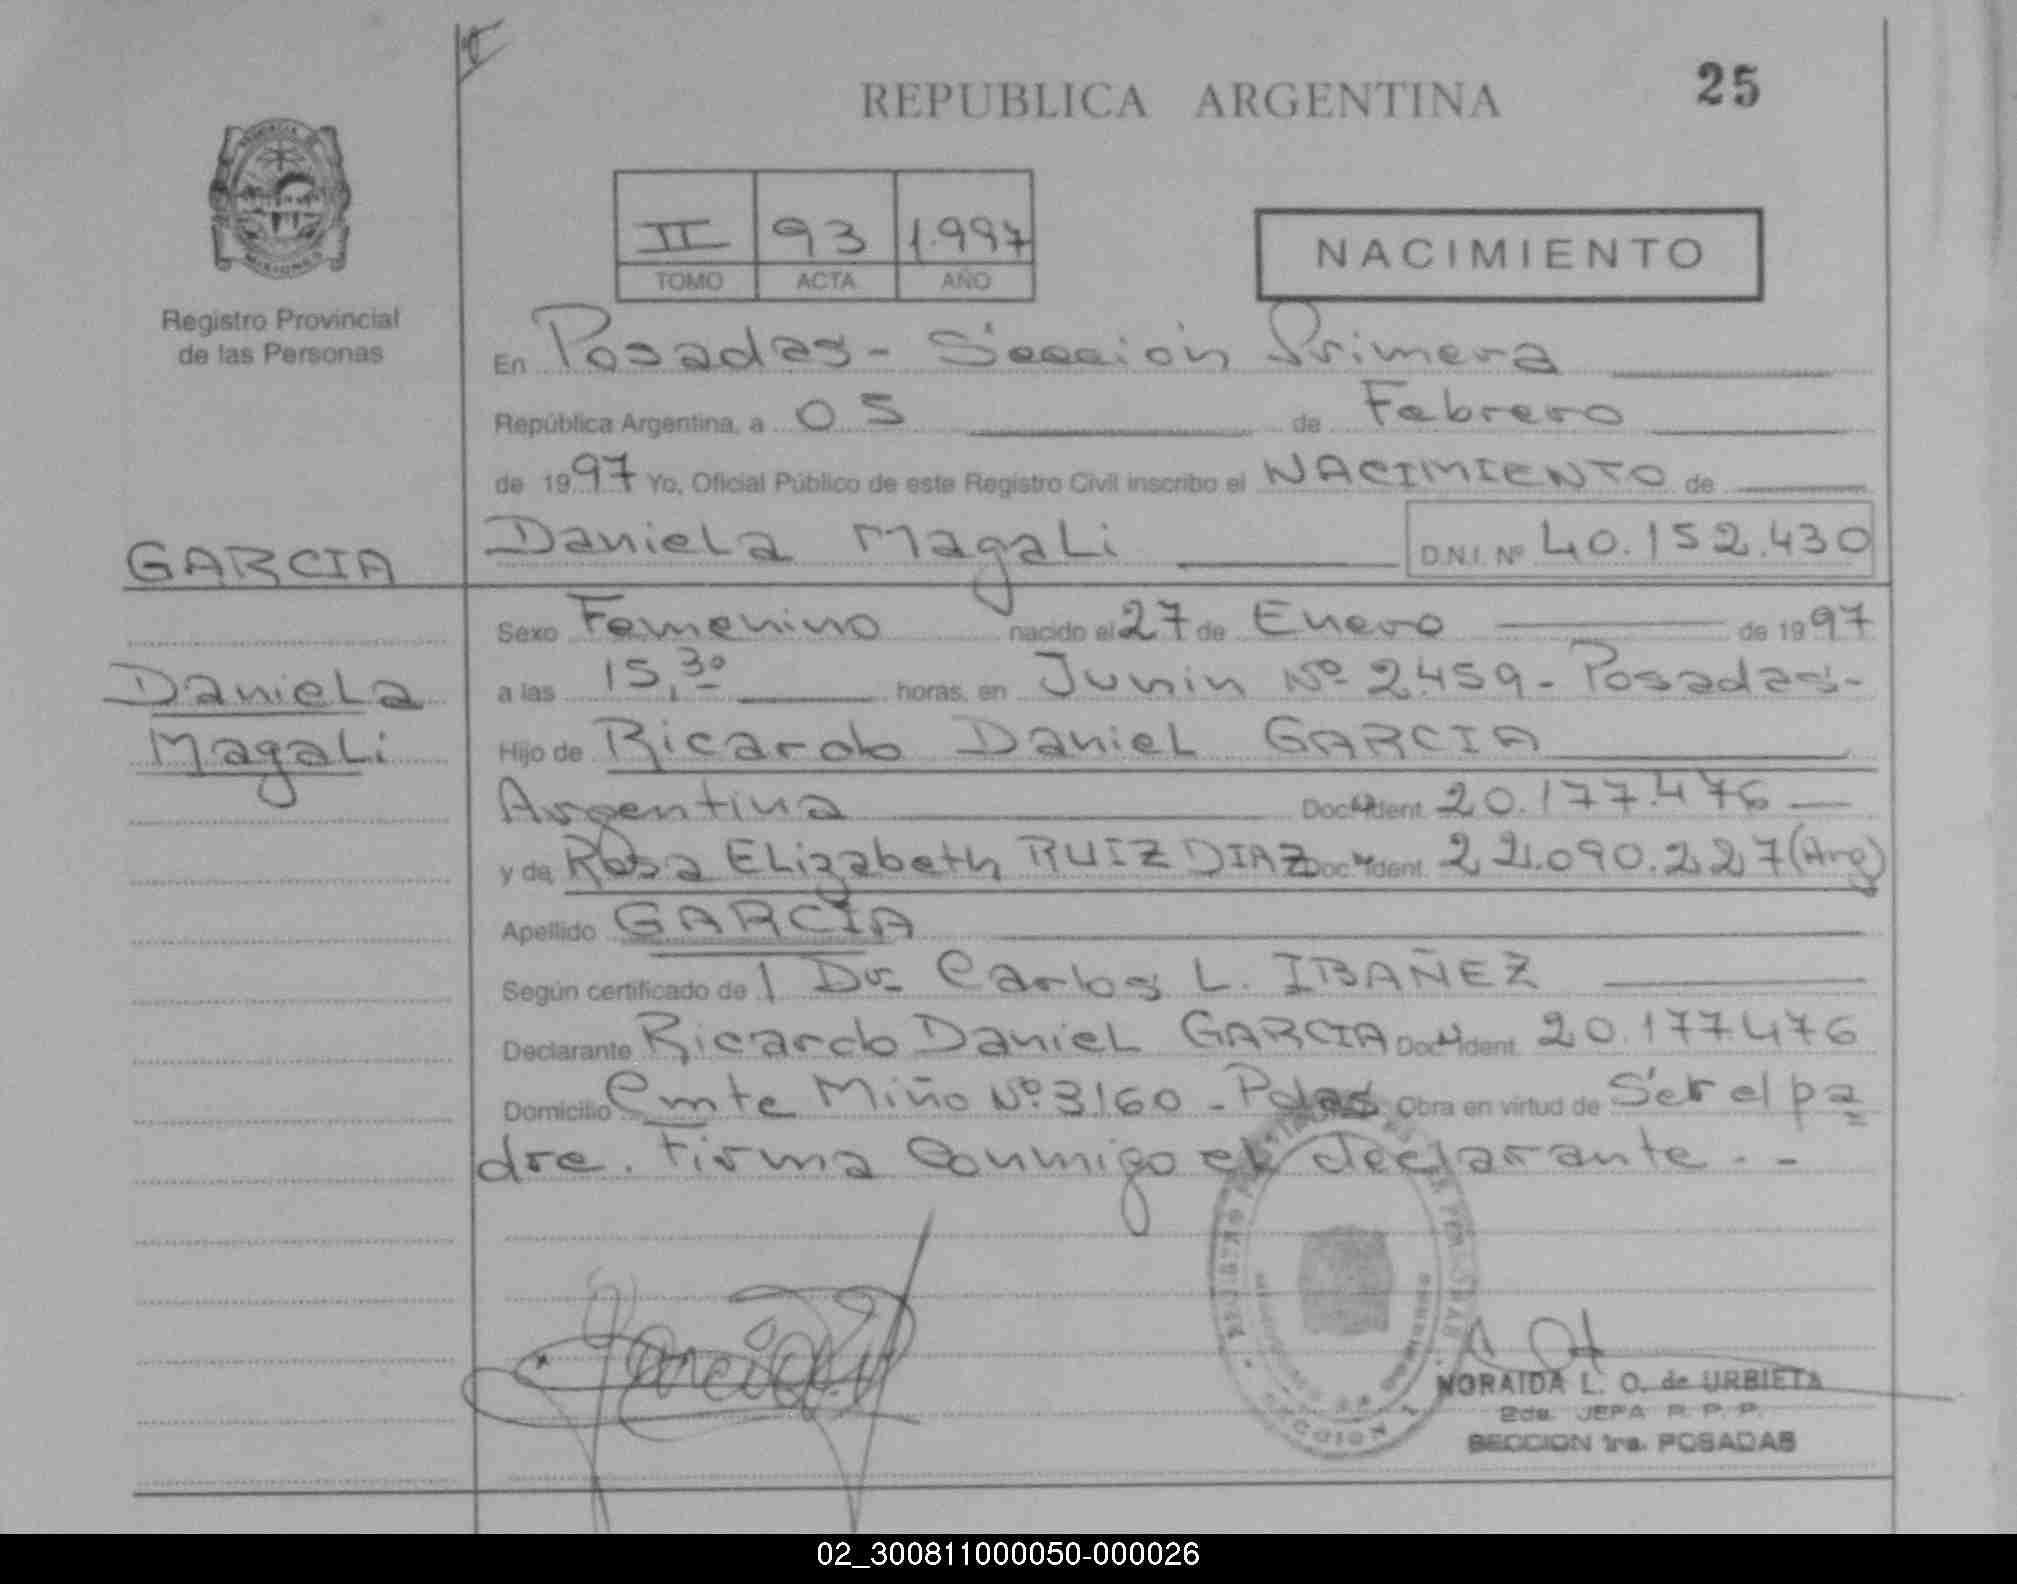 REPUBLICA ARGENTINA 25
II 93 1.997
TOMO ACTA AÑO
NACIMIENTO
MISIONES
Registro Provincial
de las Personas
En Posadas - Sección Primera
República Argentina, a 05 de Febrero
de 1997 Yo, Oficial Público de este Registro Civil inscribo el NACIMIENTO de
GARCIA
Daniela Magali D.N.I. Nº 40.152.430
Sexo Femenino nacido el 27 de Enero de 1997
Daniela
Magali
a las 15,30 horas, en Junin Nº 2459 - Posadas -
Hijo de Ricardo Daniel GARCIA
Argentina Doc. Ident. 20.177.476
y de Rosa Elizabeth RUIZ DIAZ Doc. Ident. .090.227 (Arg)
Apellido GARCIA
Según certificado de Dr. Carlos L. IBAÑEZ
Declarante Ricardo Daniel GARCIA Doc. Ident. 20.177.476
Domicilio Cmte Miño Nº 3160 - Pdas Obra en virtud de Ser el pa
dre. Firma Conmigo el declarante. -
NORAIDA L. O. de URBIETA
2da. JEFA R. P. P.
SECCION 1ra. POSADAS
02_300811000050-000026